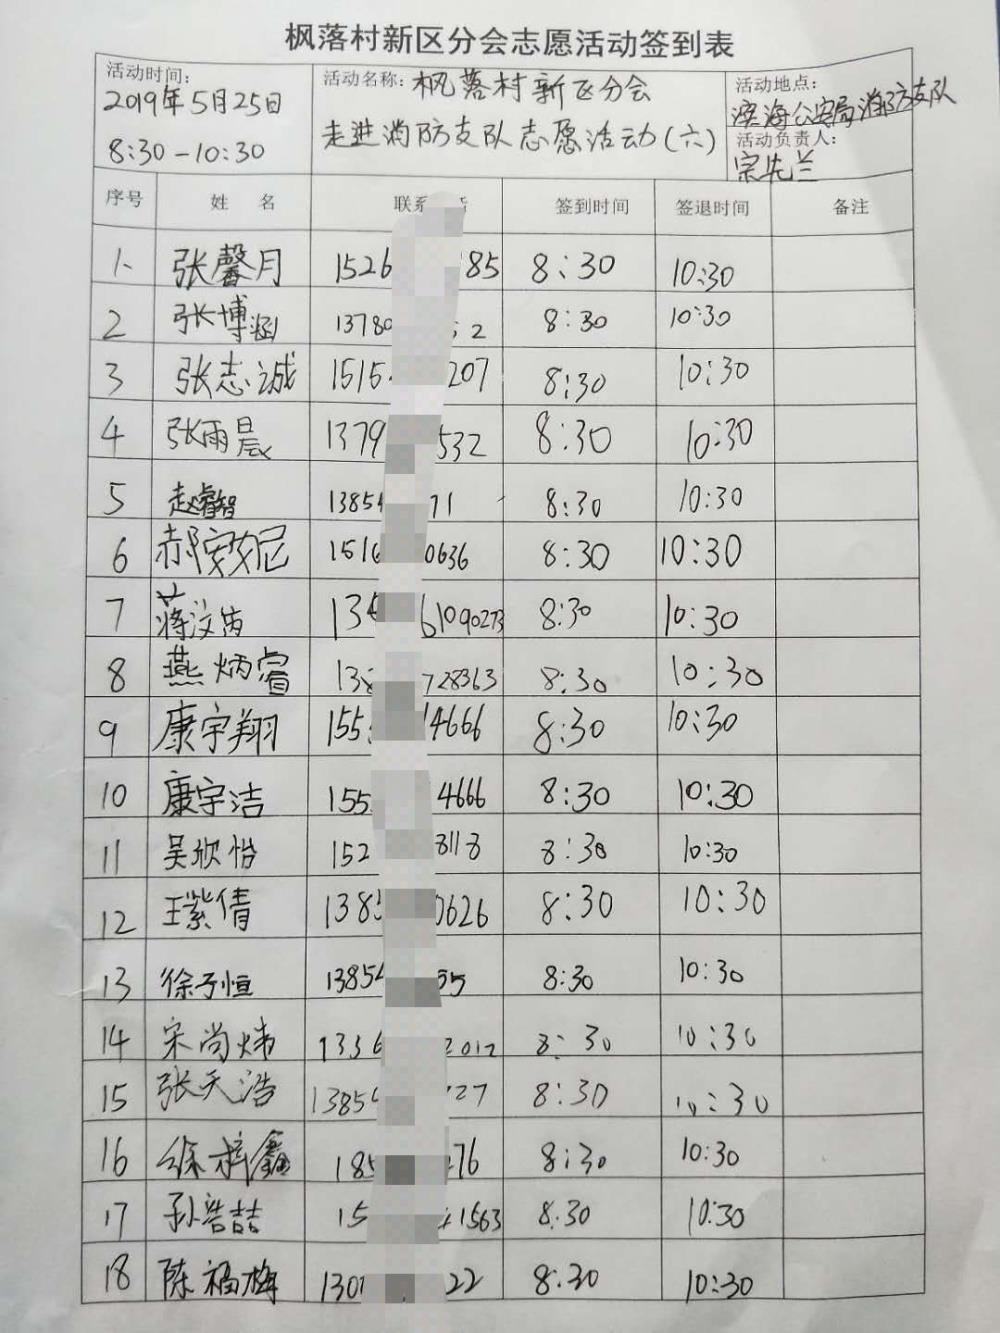 枫落村新区分会志愿活动签到表
活动时间: 2019年5月25日 8:30-10:30
活动名称: 枫落村新区分会 走进消防支队志愿活动(六)
活动地点: 滨海公安局消防支队
活动负责人: 宗先兰
序号 姓名 联系 话 签到时间 签退时间 备注
1、 张馨月 1526 185 8:30 10:30
2 张博涵 13780 52 8:30 10:30
3 张志诚 1515 207 8:30 10:30
4 张雨晨 1379 532 8:30 10:30
5 赵睿智 1385 71 8:30 10:30
6 郝安妮 1516 0636 8:30 10:30
7 蒋汶芮 13 61090273 8:30 10:30
8 燕炳睿 13 728363 8:30 10:30
9 康宇翔 155 4666 8:30 10:30
10 康宇洁 155 4666 8:30 10:30
11 吴欣怡 152 8118 8:30 10:30
12 王紫倩 138 0626 8:30 10:30
13 徐子恒 1385 55 8:30 10:30
14 宋尚炜 1336 2012 8:30 10:30
15 张天浩 1385 27 8:30 10:30
16 徐梓鑫 185 76 8:30 10:30
17 孙浩喆 15 1563 8:30 10:30
18 陈福梅 130 22 8:30 10:30